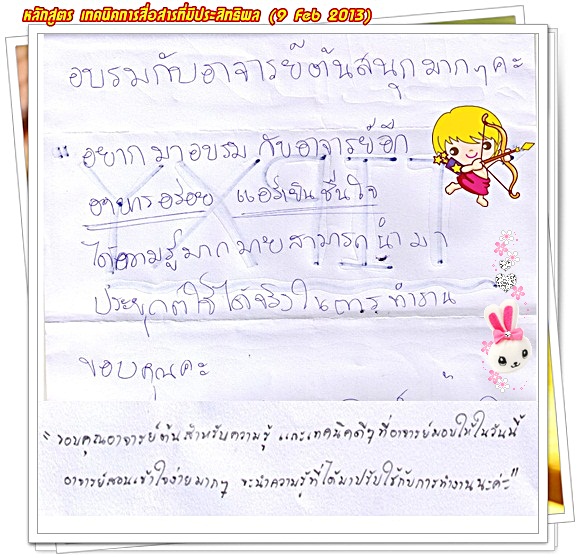 หลักสูตร เทคนิคการสื่อสารที่มีประสิทธิผล (9 Feb 2013)
อบรมกับอาจารย์ต้นสนุกมากๆคะ
" อยากมาอบรม กับอาจารย์อีก
อาหารอร่อย แอร์เย็นชื่นใจ
ได้ความรู้มากมายสามารถนำมา
ประยุกต์ใช้ได้จริงในการทำงาน
ขอบคุณคะ
"ขอบคุณอาจารย์ต้นสำหรับความรู้ และเทคนิคดีๆที่อาจารย์มอบให้ในวันนี้
อาจารย์สอนเข้าใจง่ายมากๆ จะนำความรู้ที่ได้มาปรับใช้กับการทำงานนะค่ะ"